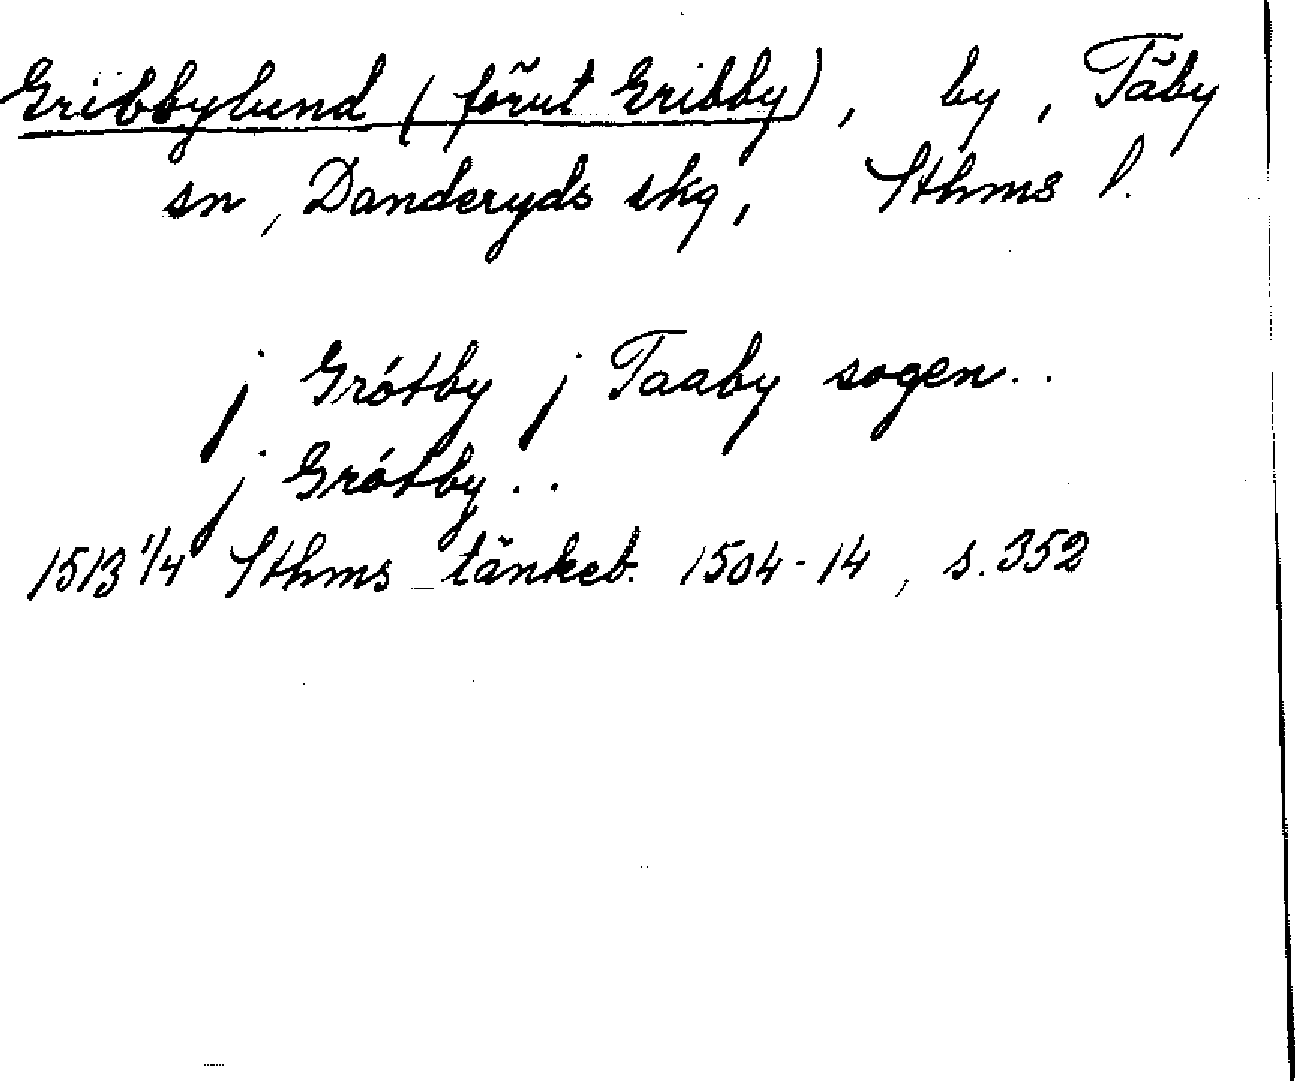 Gribbylund (förut Gribby), by, Täby
sn, Danderyds skg, Sthms l.
j Grótby j Taaby sogen..
j Grótby..
1513 1/4 Sthms tänkeb. 1504-14, s. 352